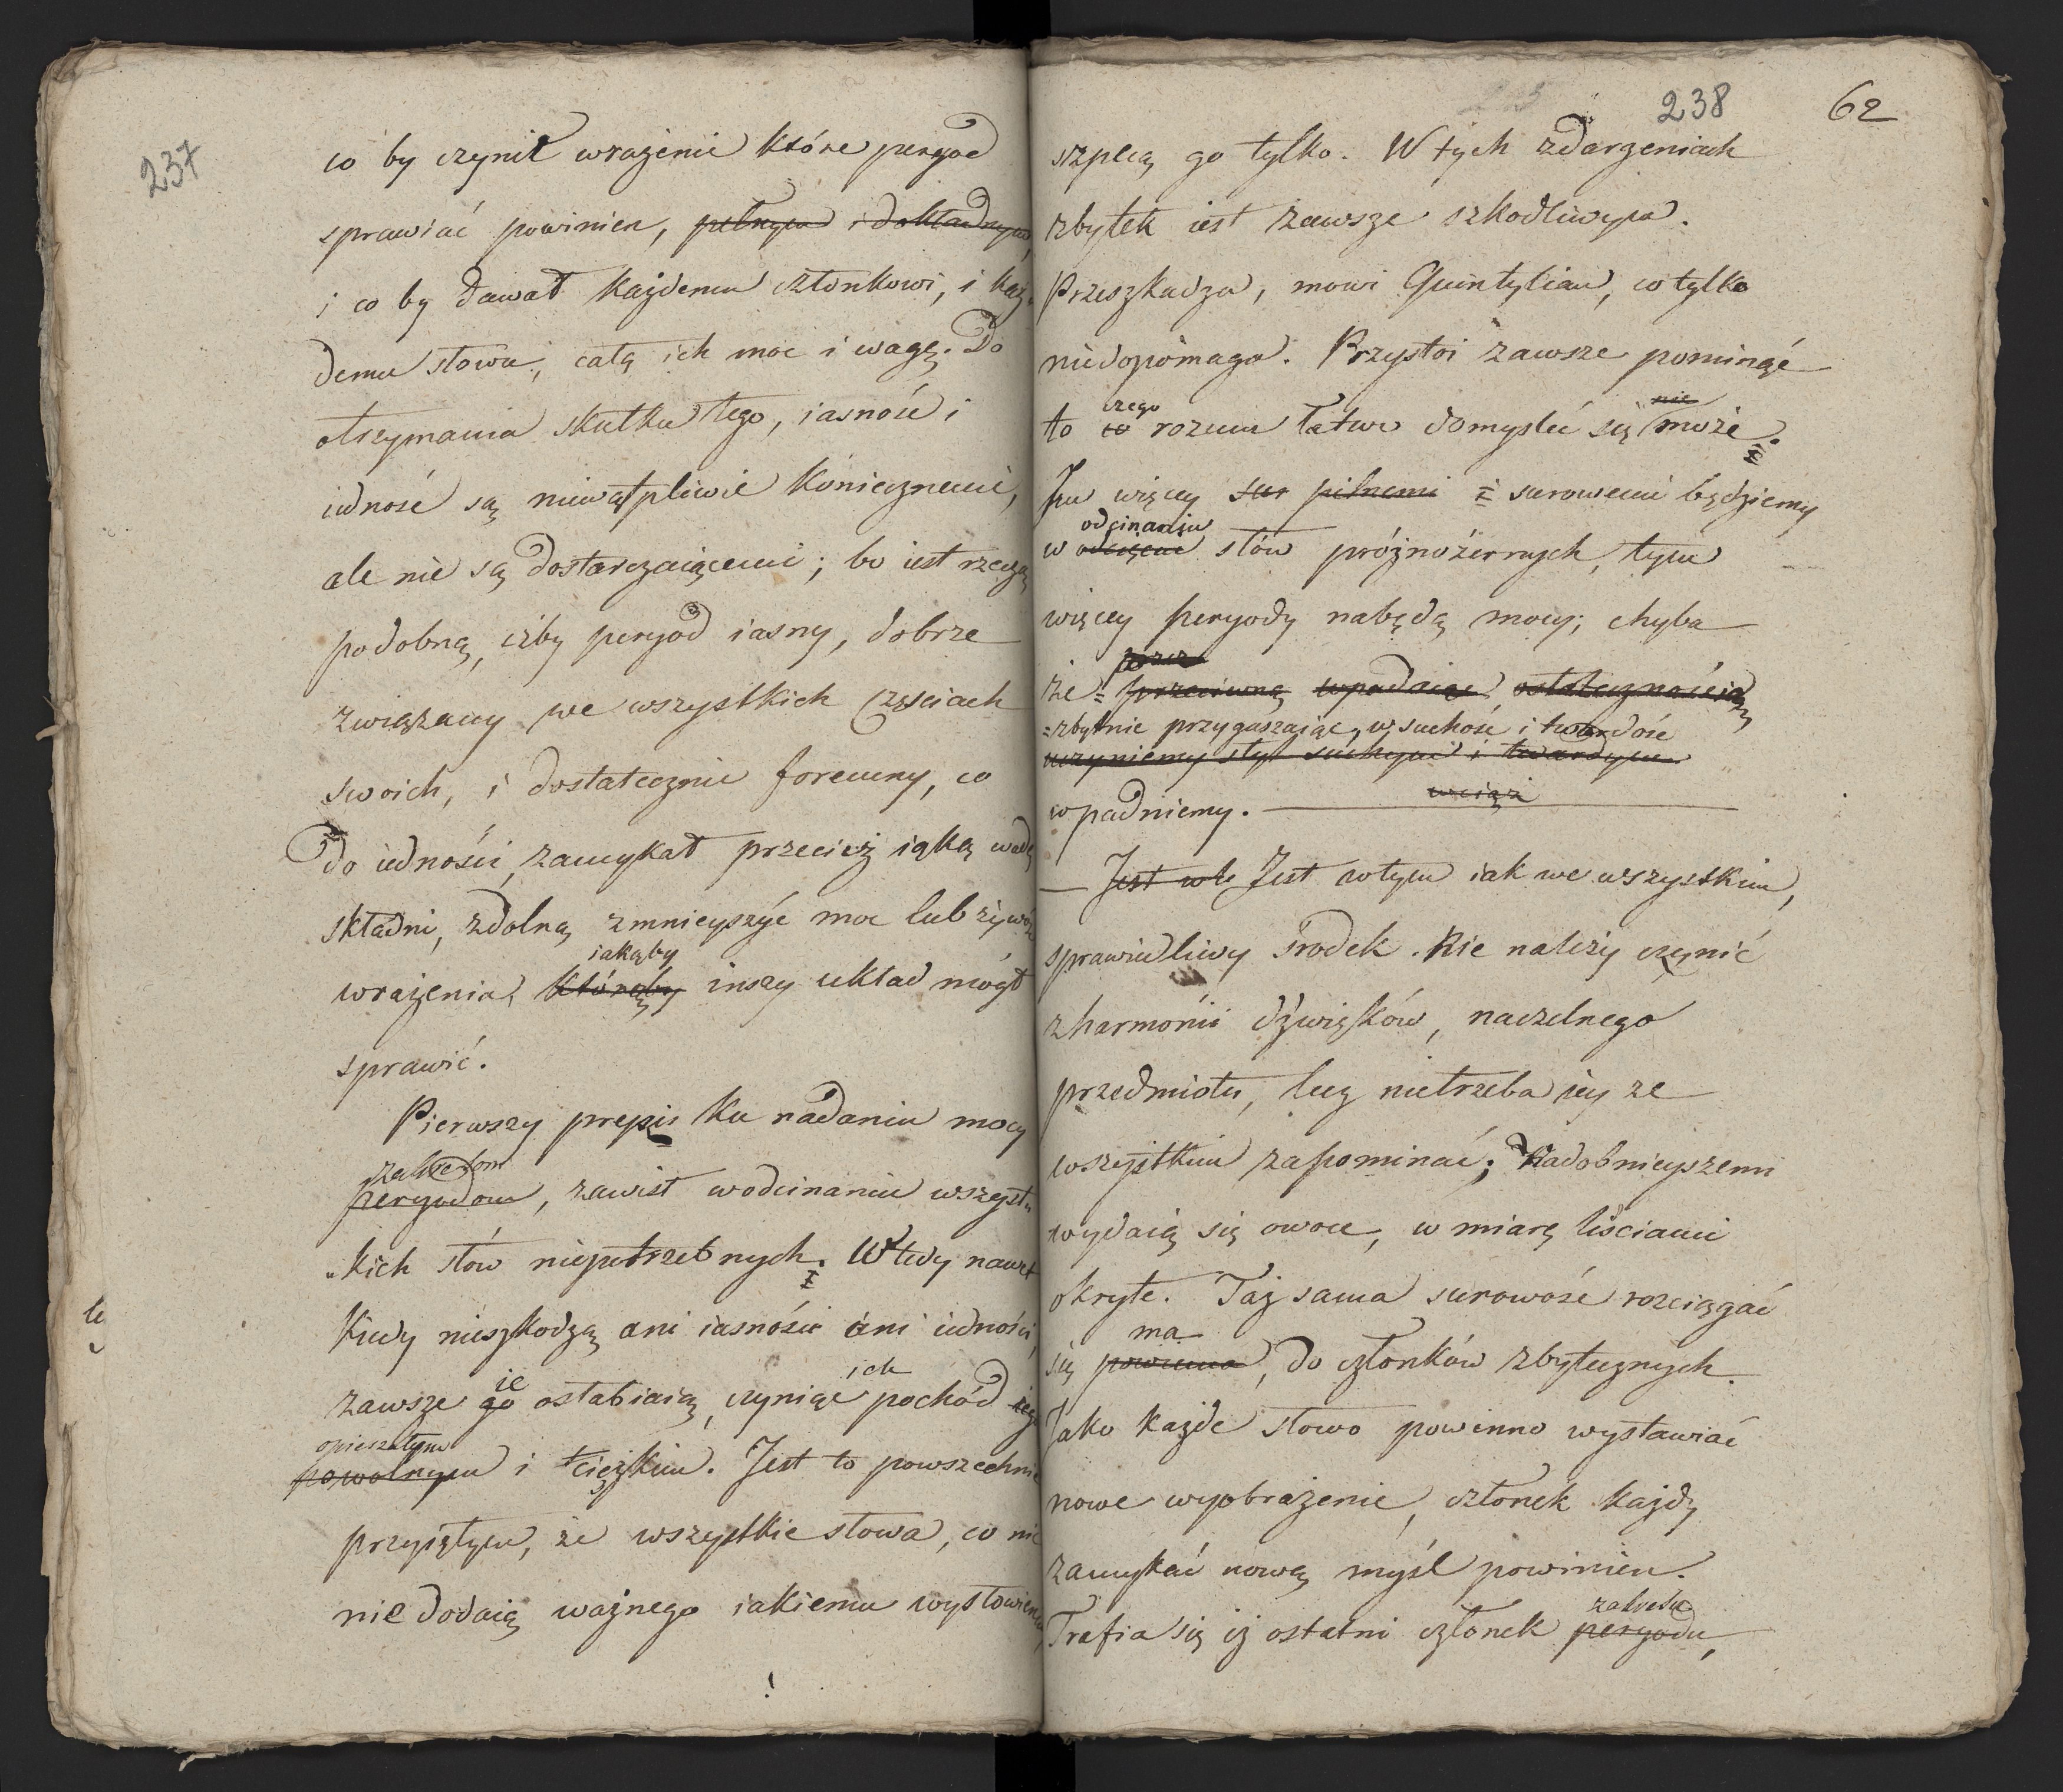 237
co by czynił wrażenie które peryod
sprawiać powinien, pełnym i dokładnym,
i co by dawał każdemu członkowi, i każ
demu słowu, całą ich moc i wagę. Do
otrzymania skutku tego, iasność i
iedność są niewątpliwie koniecznemi,
ale nie są dostarczaiącemi; bo iest rzeczą
podobną, iżby peryod iasny, dobrze
związany we wszystkich częściach
swoich, i dostatecznie foremny, co
do iedności, zamykał przecież iąką wadę
składni, zdolną zmnieyszyć moc lub żywość
iakąby
wrażenia, którąby inszy układ mógł
sprawić.
Pierwszy prepis ku nadaniu mocy
zakresom
peryodom, zawisł wodcinaniu wszyst„
„kich słów niepotrzebnych. Wtedy nawet
kiedy nieszkodzą ani iasności ani iedności,
ie ich
zawsze go osłabiaią, czyniąc pochód iego
opieszałym
powolnym i cięzkim. Jest to powszechnie
przyiętym, że wszystkie słowa, co nic
nie dodaią ważnego iakiemu wysłowieniu,
238 62
szpecą go tylko. W tych zdarzeniach
zbytek iest zawsze szkodliwym.
Przeszkadza, mowi Quintylian, co tylko
niedopomaga. Przystoi zawsze pominąć
czego nie
to co rozum łatwo domysleć się może.
Im więcey sur pilnemi i surowemi będziemy
odcinaniu
w odcięciu słów próżnożernych, tym
więcey peryody nabędą mocy; chyba
przez
że = przeciwną wpadaiąc ostatecznością
= zbytnie przygaszaiąc, w suchość i twardość
uczyniemy styl suchym i twardym
wciąż
wpadniemy.
— Jest w te Jest wtym iak we wszystkim,
sprawiedliwy środek. Nie należy czynić
zharmónii dźwięków, naczelnego
przedmiotu, lecz nietrzeba iey ze
wszystkim zapominać; Nadobnieyszemi
wydaią się owoce, w miarę liściami
okryte. Taż sama surowość rozciągać
ma
się powinna, do członków zbytecznych.
Jako każde słowo powinno wystawiać
nowe wyobrażenie, członek każdy
zamykać nową myśl powinien.
zakresu
Trafia się iż ostatni członek peryodu,